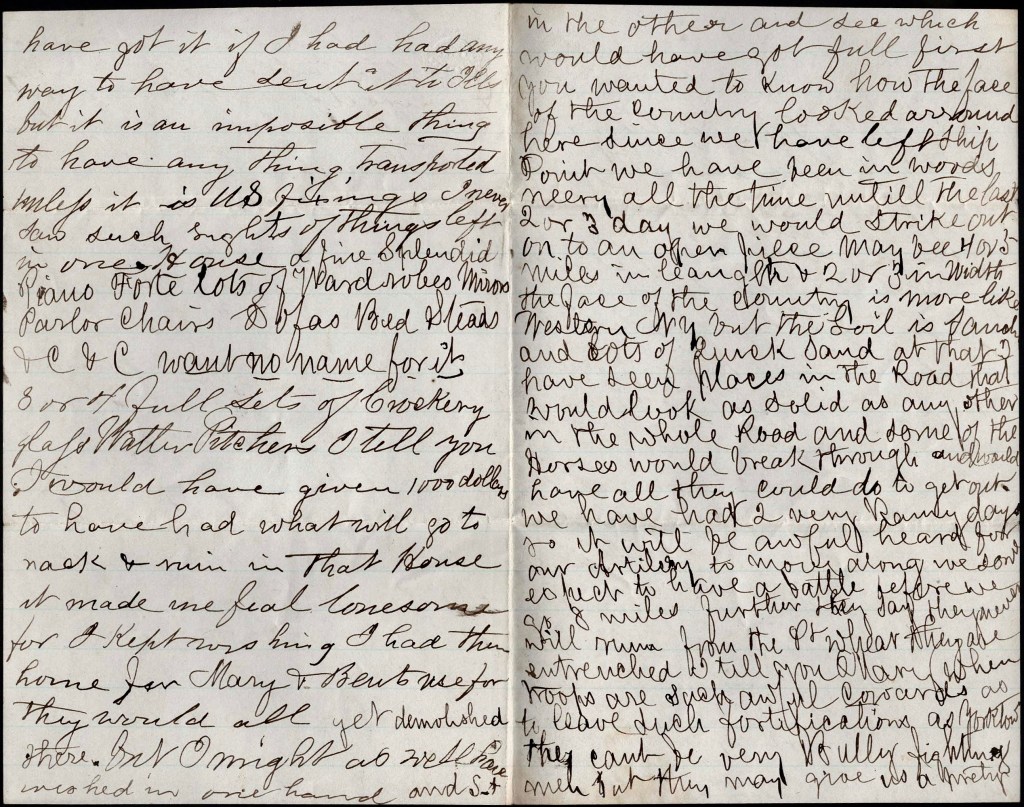 have got it if I had had any
way to have sent it to Ills
but it is an imposible thing
to have any thing transported
unless it is US fixings I never
saw such sights of things left
in one House a fine Splendid
Piano Forte lots of Wardrobes Mirors
Parlor Chairs Sofas Bed Steads
& C & C want no name for it
3 or 4 full sets of Crockery
glass Watter Pitchers I tell you
I would have given 1000 dollars
to have had what will go to
rack & ruin in that House
it made me feal lonesome
for I kept wishing I had them
home for Mary & Bents use for
they would all yet demolished
there. but I might as well have
wished in one hand and S-t
in the other and see which
would have got full first
you wanted to know how the face
of the Country looked arround
here since we have left Ship
Point we have been in woods
neery all the time untill the last
2 or 3 day we would strike out
on to an open piece May bee 4 or 5
miles in leangth & 2 or 3 in Width
the face of the Country is more like
Western NY but the Soil is Sand
and lots of Quick Sand at that I
have seen places in the Road that
would look as solid as any other
in the whole Road and some of the
Horses would break through and would
have all they could do to get out
we have had 2 very Rainy days
so it will be awful heard for
our Artilery to move along we some
expect to have a battle before we
go 8 miles further they say they never
will runn from the Pt whear they are
entrenched I tell you Mary when
troops are such awful Cowards as
to leave such fortifications as Yorktown
they cant be very Bully fighting
men but they may give us a prety